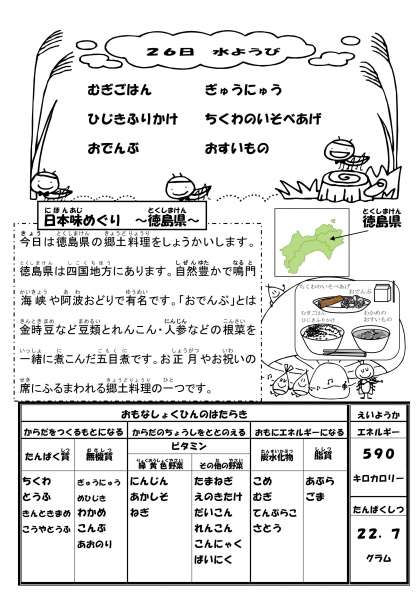 26日 水ようび
むぎごはん ぎゅうにゅう
ひじきふりかけ ちくわのいそべあげ
おでんぶ おすいもの
日本味めぐり ～徳島県～
徳島県
今日は徳島県の郷土料理をしょうかいします。
徳島県は四国地方にあります。自然豊かで鳴門
海峡や阿波おどりで有名です。「おでんぶ」とは
金時豆など豆類とれんこん・人参などの根菜を
一緒に煮こんだ五目煮です。お正月やお祝いの
席にふるまわれる郷土料理の一つです。
ちくわのいそべあげ
おでんぶ
むぎごはん
ひじきふりかけ
わかめの
おすいもの
おもなしょくひんのはたらき
えいようか
からだをつくるもとになる
からだのちょうしをととのえる
おもにエネルギーになる
エネルギー
たんぱく質
無機質
ビタミン
緑黄色野菜
その他の野菜
炭水化物
脂質
590
キロカロリー
たんぱくしつ
22.7
グラム
ちくわ
とうふ
きんときまめ
こうやとうふ
ぎゅうにゅう
めひじき
わかめ
こんぶ
あおのり
にんじん
あかしそ
ねぎ
たまねぎ
えのきたけ
だいこん
れんこん
こんにゃく
ばいにく
こめ
むぎ
てんぷらこ
さとう
あぶら
ごま